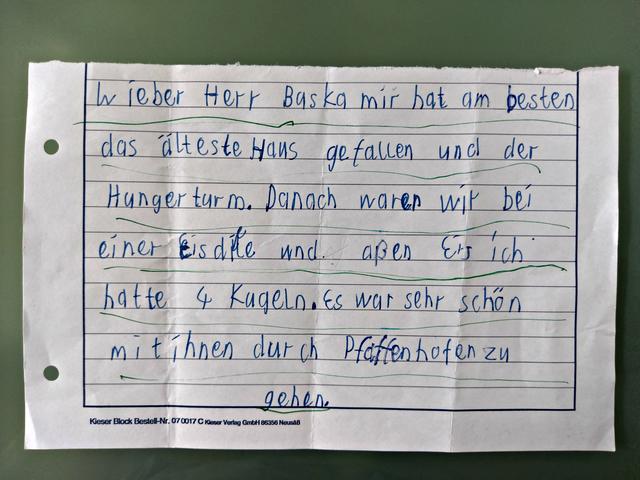 Wieber Herr Baska mir hat am besten
das älteste Haus gefallen und der
Hungerturm. Danach waren wir bei
einer Eisdile und aßen Eis ich
hatte 4 Kugeln. Es war sehr schön
mit ihnen durch Pfaffenhofen zu
gehen.
Kieser Block Bestell-Nr. 07 0017 C Kieser Verlag GmbH 86356 Neusäß